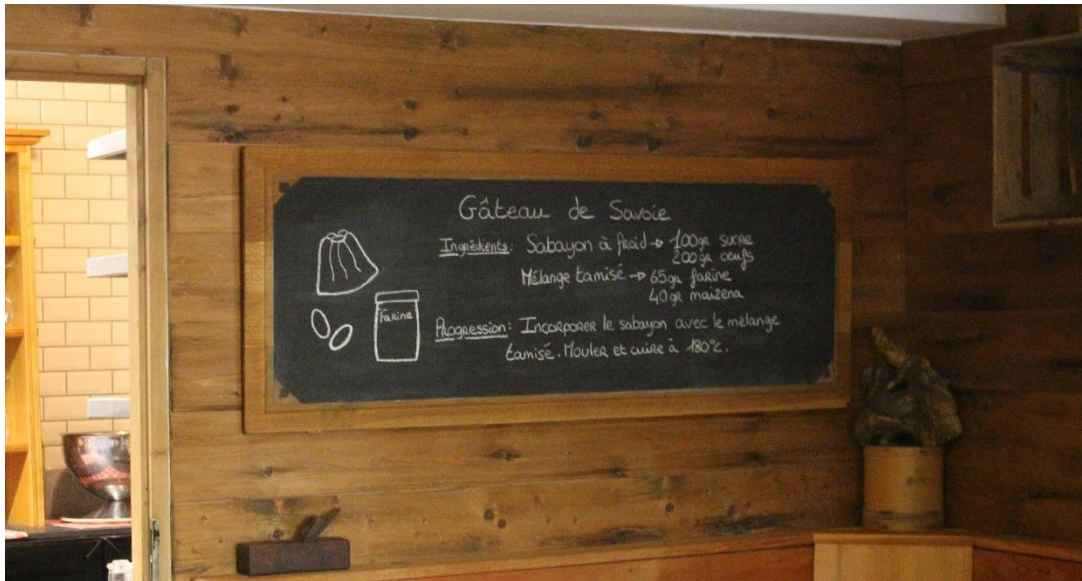 Gâteau de Savoie
Ingrédients: Sabayon à froid → 100gr sucre
200gr oeufs
Mélange tamisé → 65gr farine
40gr maïzena
Farine
Progression: Incorporer le sabayon avec le mélange
tamisé. Mouler et cuire à 180°c.